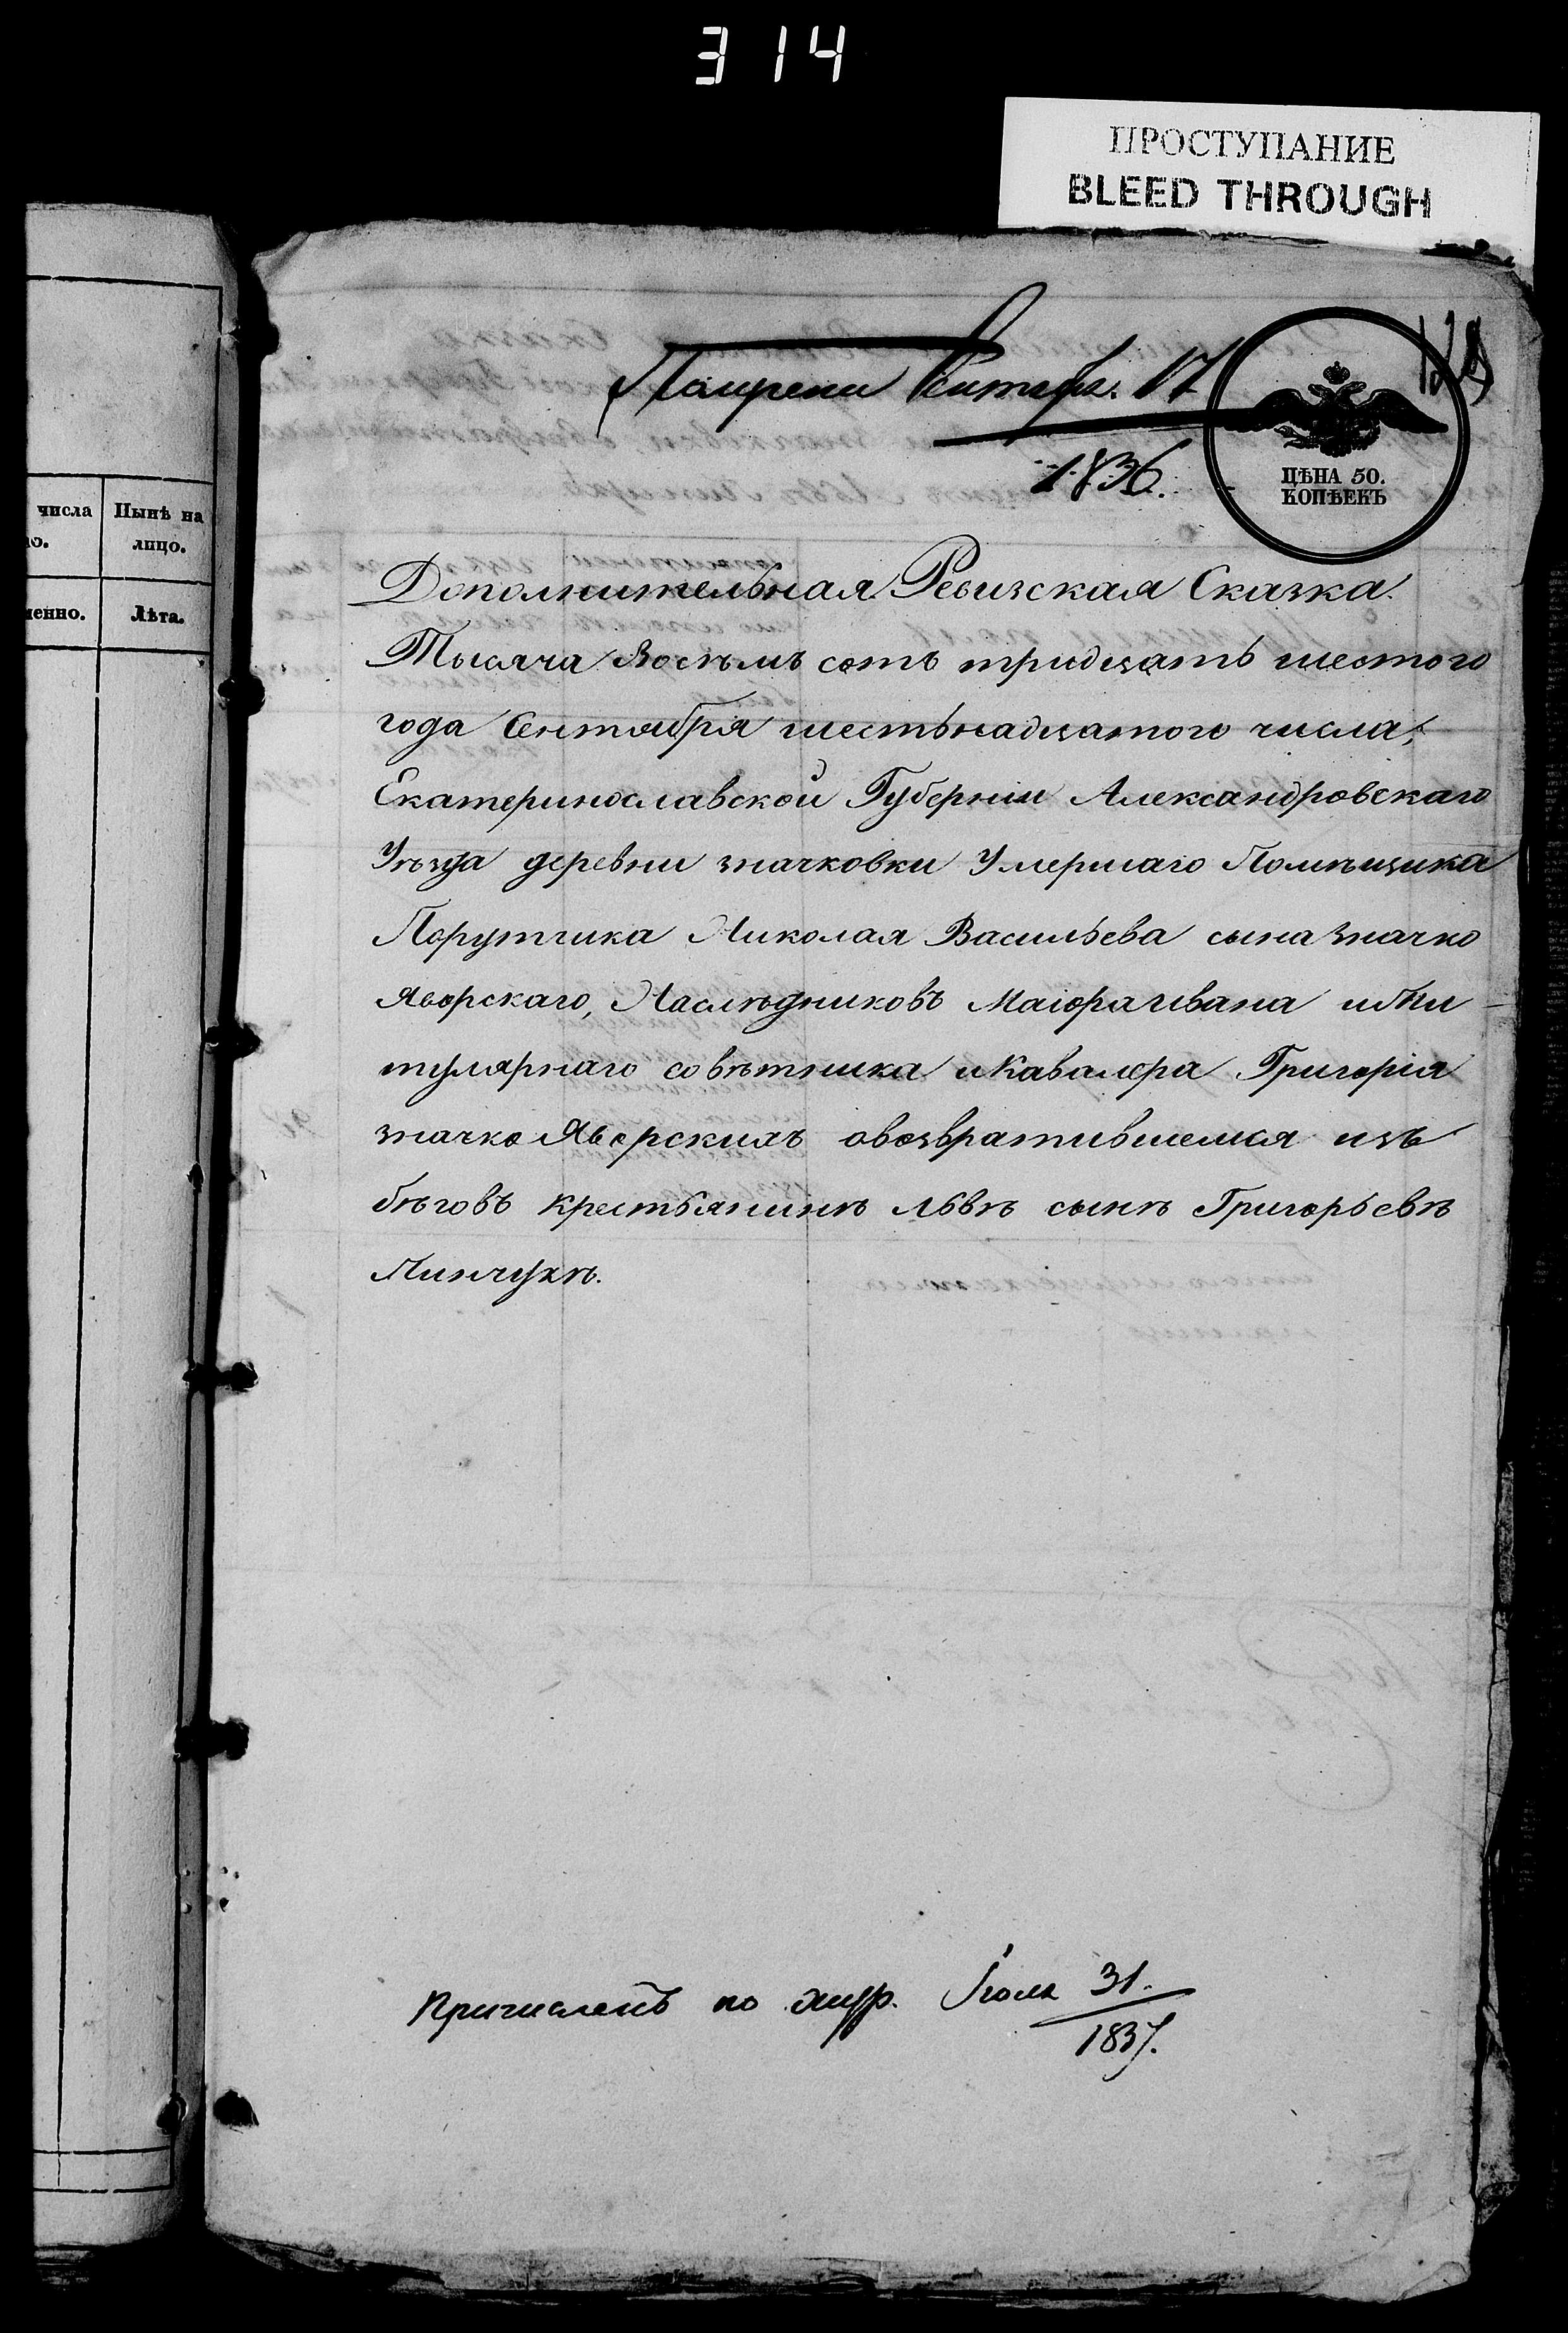 314
ПРОСТУПАНИЕ
BLEED THROUGH
числа
Нынѣ на
лицо.
Лѣта.
Сентября 17
1836.
ЦѢНА 50.
КОПѢЕКЪ
Дополнительная Ревизская Сказка.
Тысяча Восѣмъ сотъ тридцать шестого
года Сентября шестьнадцатого числа,
Екатеринославской Губерніи Александровскаго
Уѣзда деревни значковки Умершаго Помѣщика
Порутчика Николая Васильева сына значко
Яворскаго, Наслѣдниковъ Маіора ивана и Ти-
тулярнаго совѣтника и Кавалера Григорія
значко Яворскихъ овозвратившемся изъ
бѣговъ крестьянинѣ Львѣ сынѣ Григорьевѣ
Пинчукѣ.
Причисленъ по
31.
1837.